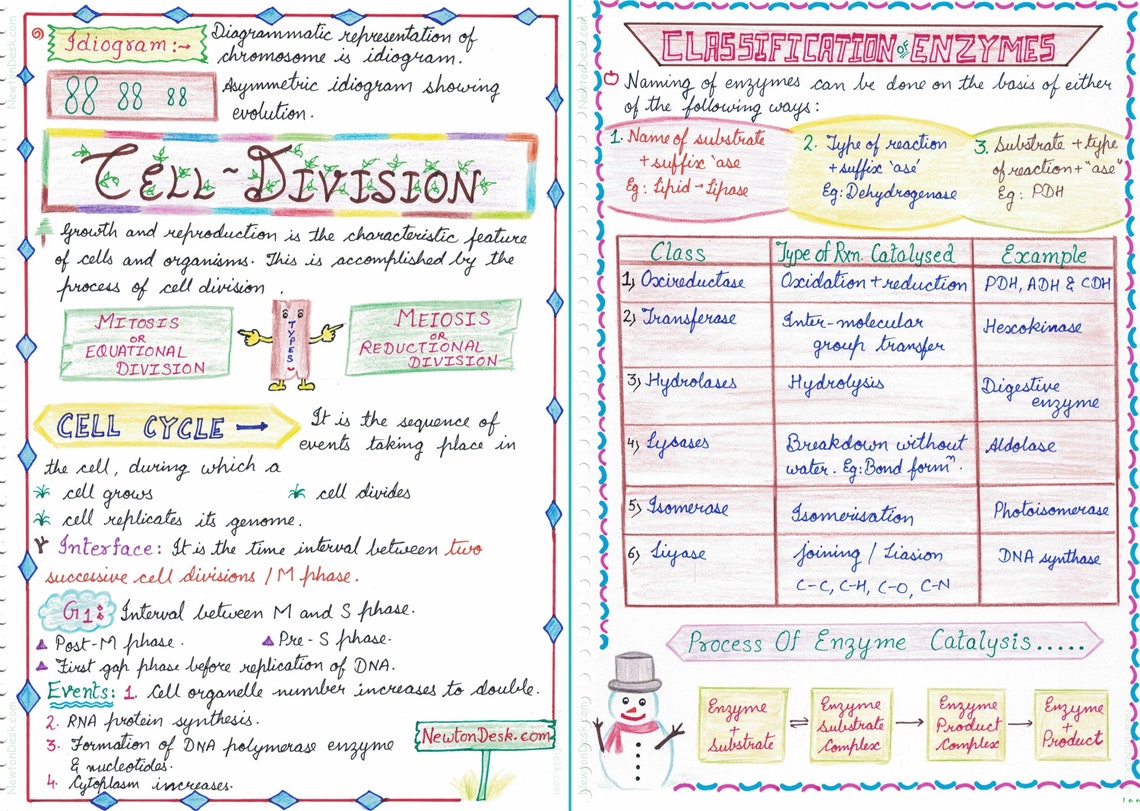 Idiogram:→ Diagrammatic representation of
chromosome is idiogram.
Asymmetric idiogram showing
evolution.
CELL-DIVISION
Growth and reproduction is the characteristic feature
of cells and organisms. This is accomplished by the
process of cell division.
MITOSIS
OR
EQUATIONAL
DIVISION
TYPES
MEIOSIS
OR
REDUCTIONAL
DIVISION
CELL CYCLE → It is the sequence of
events taking place in
the cell, during which a
cell grows
cell divides
cell replicates its genome.
Interface: It is the time interval between two
successive cell divisions / M phase.
G1: Interval between M and S phase.
Post-M phase.
Pre-S phase.
First gap phase before replication of DNA.
Events: 1. Cell organelle number increases to double.
2. RNA protein synthesis.
3. Formation of DNA polymerase enzyme
& nucleotides.
4. Cytoplasm increases.
NewtonDesk.com
CLASSIFICATION of ENZYMES
Naming of enzymes can be done on the basis of either
of the following ways:
1. Name of substrate
+ suffix 'ase
Eg: Lipid → Lipase
2. Type of reaction
+ suffix 'ase'
Eg: Dehydrogenase
3. Substrate + type
of reaction + "ase"
Eg: PDH
Class Type of Rxn. Catalysed Example
1) Oxireductase Oxidation + reduction PDH, ADH & CDH
2) Transferase Inter-molecular
group transfer Hexcokinase
3) Hydrolases Hydrolysis Digestive
enzyme
4) Lysases Breakdown without
water. Eg: Bond formⁿ. Aldolase
5) Isomerase Isomerisation Photoisomerase
6) Liyase joining / Liasion DNA synthase
C-C, C-H, C-O, C-N
Process Of Enzyme Catalysis.....
Enzyme
+
Substrate
⇌
Enzyme
Substrate
Complex
→
Enzyme
Product
Complex
→
Enzyme
+
Product